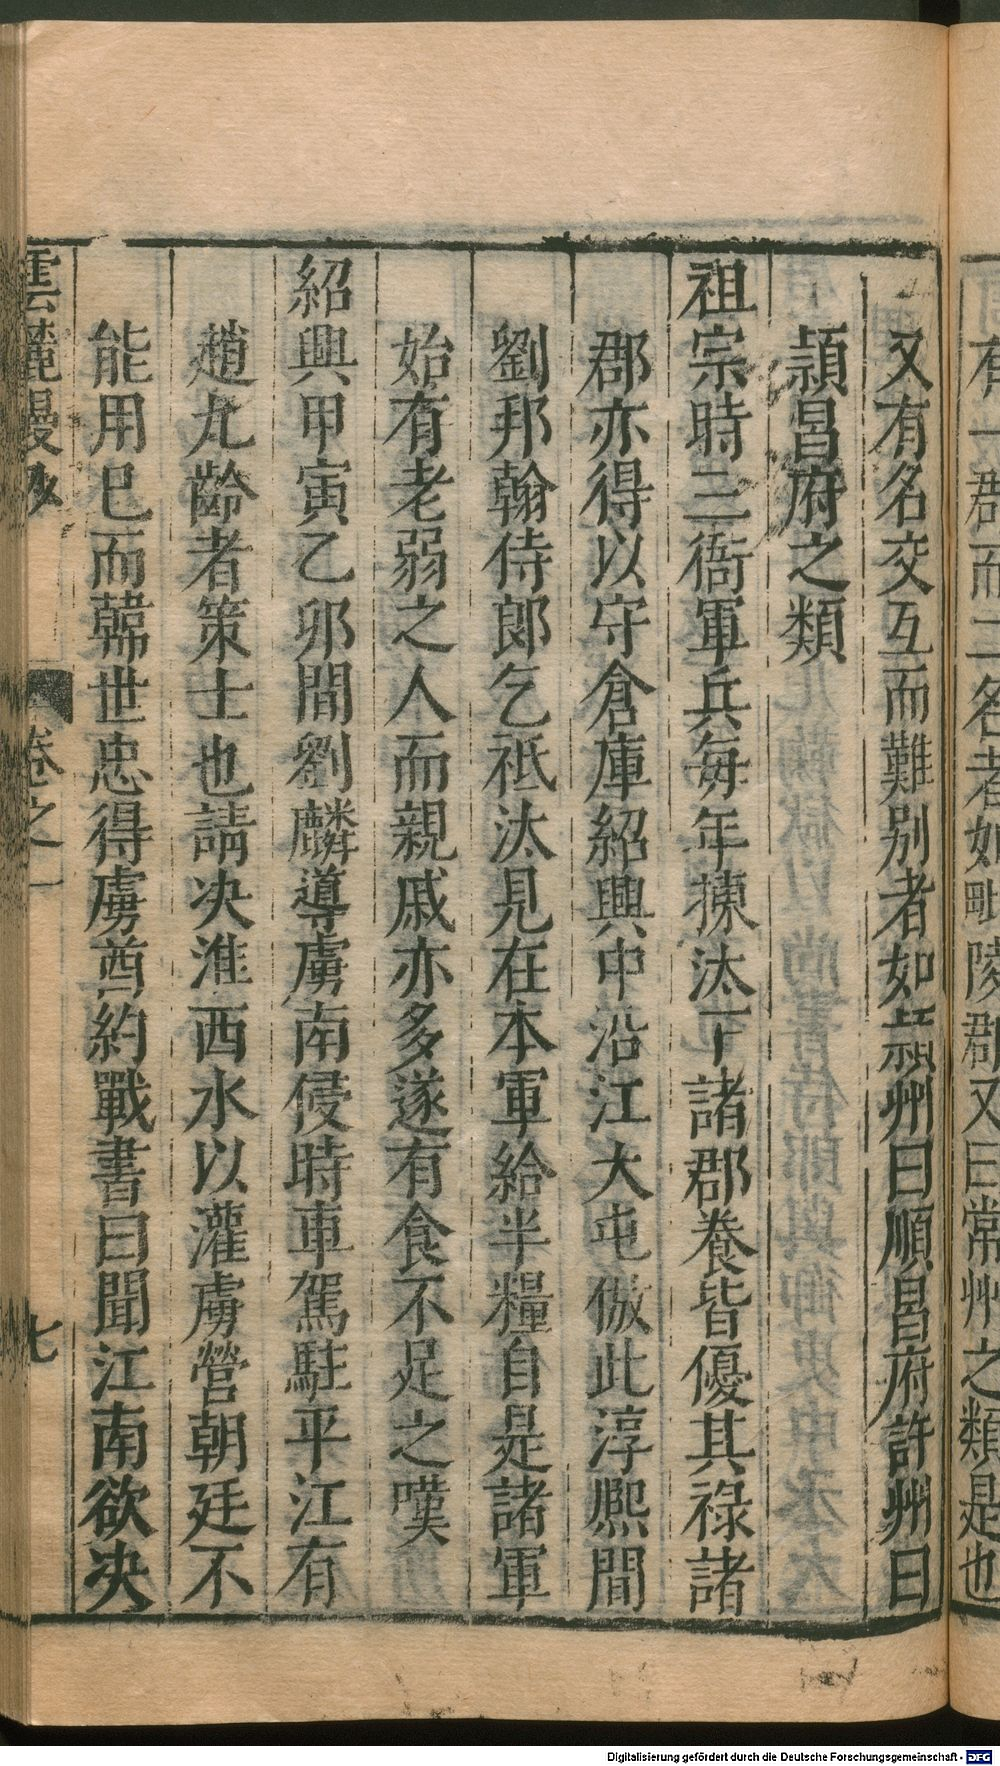 有一郡而二名者如毗陵郡又曰常州之類是也
又有名交互而難别者如潁州曰順昌府許州曰
潁昌府之類
祖宗時三衙軍兵每年揀汰下諸郡養皆優其祿諸
郡亦得以守倉庫紹興中沿江大屯倣此淳熈間
劉邦翰侍郎乞祗汰見在本軍給半糧自是諸軍
始有老弱之人而親戚亦多遂有食不足之嘆
紹興甲寅乙夘間劉麟導虜南侵時車駕駐平江有
趙九齡者策士也請决淮西水以灌虜營朝廷不
能用巳而韓世忠得虜酋約戰書曰聞江南欲决
雲麓漫抄 卷之一 七
Digitalisierung gefördert durch die Deutsche Forschungsgemeinschaft - DFG